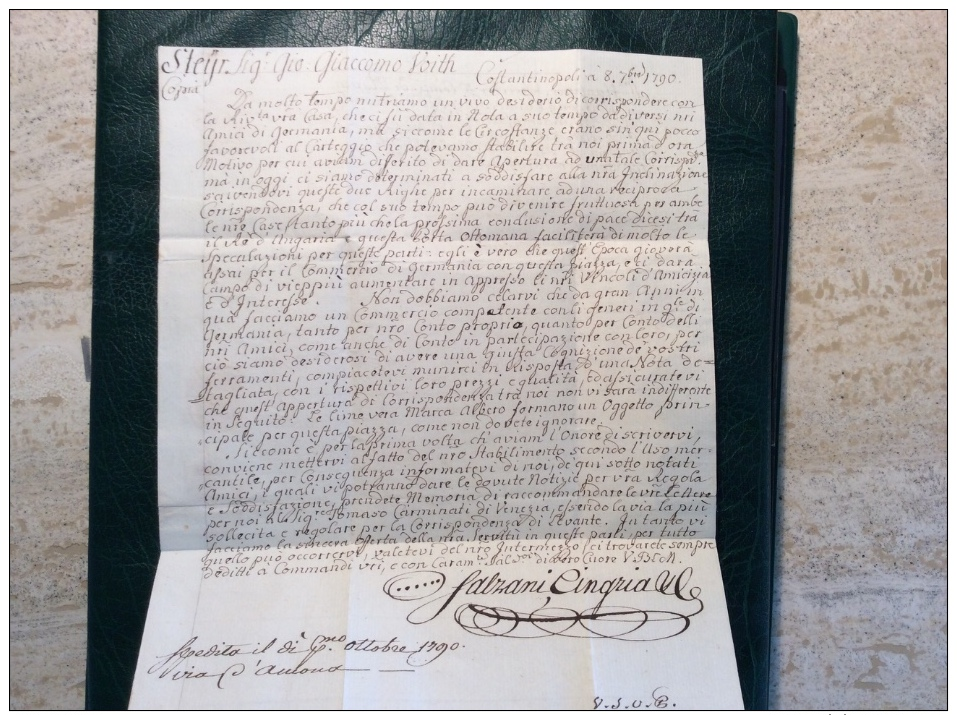 Steÿr. Sig.r Gio: Giaccomo Voith
Costantinopoli a 8. 7bre 1790.
Copia
Da molto tempo nutriamo un vivo desiderio di corrispondere con
la vra Casa, che ci fù data in Nota a suo tempo da diversi nri
Amici di Germania, mà siccome le Circostanze erano sin qui pocco
favorevoli al Carteggio che potevamo stabilire trà noi prima d'ora
Motivo per cui aviam diferito di dare Apertura ad una tale Corrispd.e
mà in oggi ci siamo determinati a soddisfare alla nra Inclinazione
scrivendovi queste due Righe per incaminare ad una reciproca
Corrispondenza, che col suo tempo può divenire fruttuosa per ambe
le nre Case, tanto più che la prossima conclusione di pace dicesi trà
il Rè d'Ungaria e questa Porta Ottomana faciliterà di molto le
speculazioni per queste parti: egli è vero che quest' Epoca gioverà
assai per il Commercio di Germania con questa piazza, e ci darà
campo di vieppiù aumentare in Appresso li nri Vincoli d'Amicizia
e d'Interesse. Non dobbiamo celarvi che da gran Anni in
quà facciamo un Commercio competente con li generi in qle di
Germania, tanto per nro Conto proprio, quanto per Conto delli
nri Amici, come anche di Conto in partecipazione con loro, per
ciò siamo desiderosi di avere una giusta Cognizione de vostri
ferramenti, compiacetevi munirci in Risposta d'una Nota de=
tagliata, con i rispettivi loro prezzi e qualità, ed assicuratevi
che quest' Appertura di Corrispondenza trà noi non vi sarà indifferente
in Seguito. Le lime vera Marca Albero formano un Oggetto prin=
cipale per questa piazza, come non dovete ignorare.
Siccome è per la prima volta ch' aviam l'Onore di scrivervi,
conviene mettervi al fatto del nro Stabilimento secondo l'Uso mer=
cantile, per conseguenza informatevi di noi, de qui sotto notati
Amici, i quali vi potranno dare le dovute Notizie per vra Regola
e Soddisfazione, prendete Memoria di raccommandare le vre Lettere
per noi al Sig.r Tomaso Carminati di Venezia, essendo la via la più
sollecita e regolare per la Corrispondenza di Levante. In tanto vi
facciamo la sincera Offerta della nra Servitù in queste parti, per tutto
quello può occorrervi, valetevi del nro Intermezzo, ci trovarete sempre
deditti a Commandi vri, e con Caram. Salv. di vero Cuore
Salzani, Cingria
Spedita il dì p.mo Ottobre 1790.
via d'Ancona
V. S. V. P.